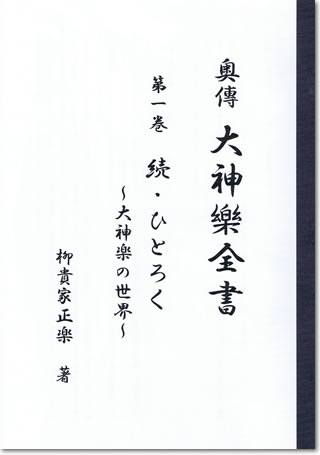 奥傳 大神樂全書
第一巻 続・ひとろく
～大神楽の世界～
柳貴家正楽 著